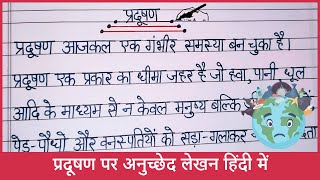 प्रदूषण
प्रदूषण आजकल एक गंभीर समस्या बन चुका है।
प्रदूषण एक प्रकार का धीमा जहर है जो हवा, पानी, धूल
आदि के माध्यम से न केवल मनुष्य बल्कि
पेड़-पौधो और वनस्पतियों को सड़ा-गलाकर
प्रदूषण पर अनुच्छेद लेखन हिंदी में